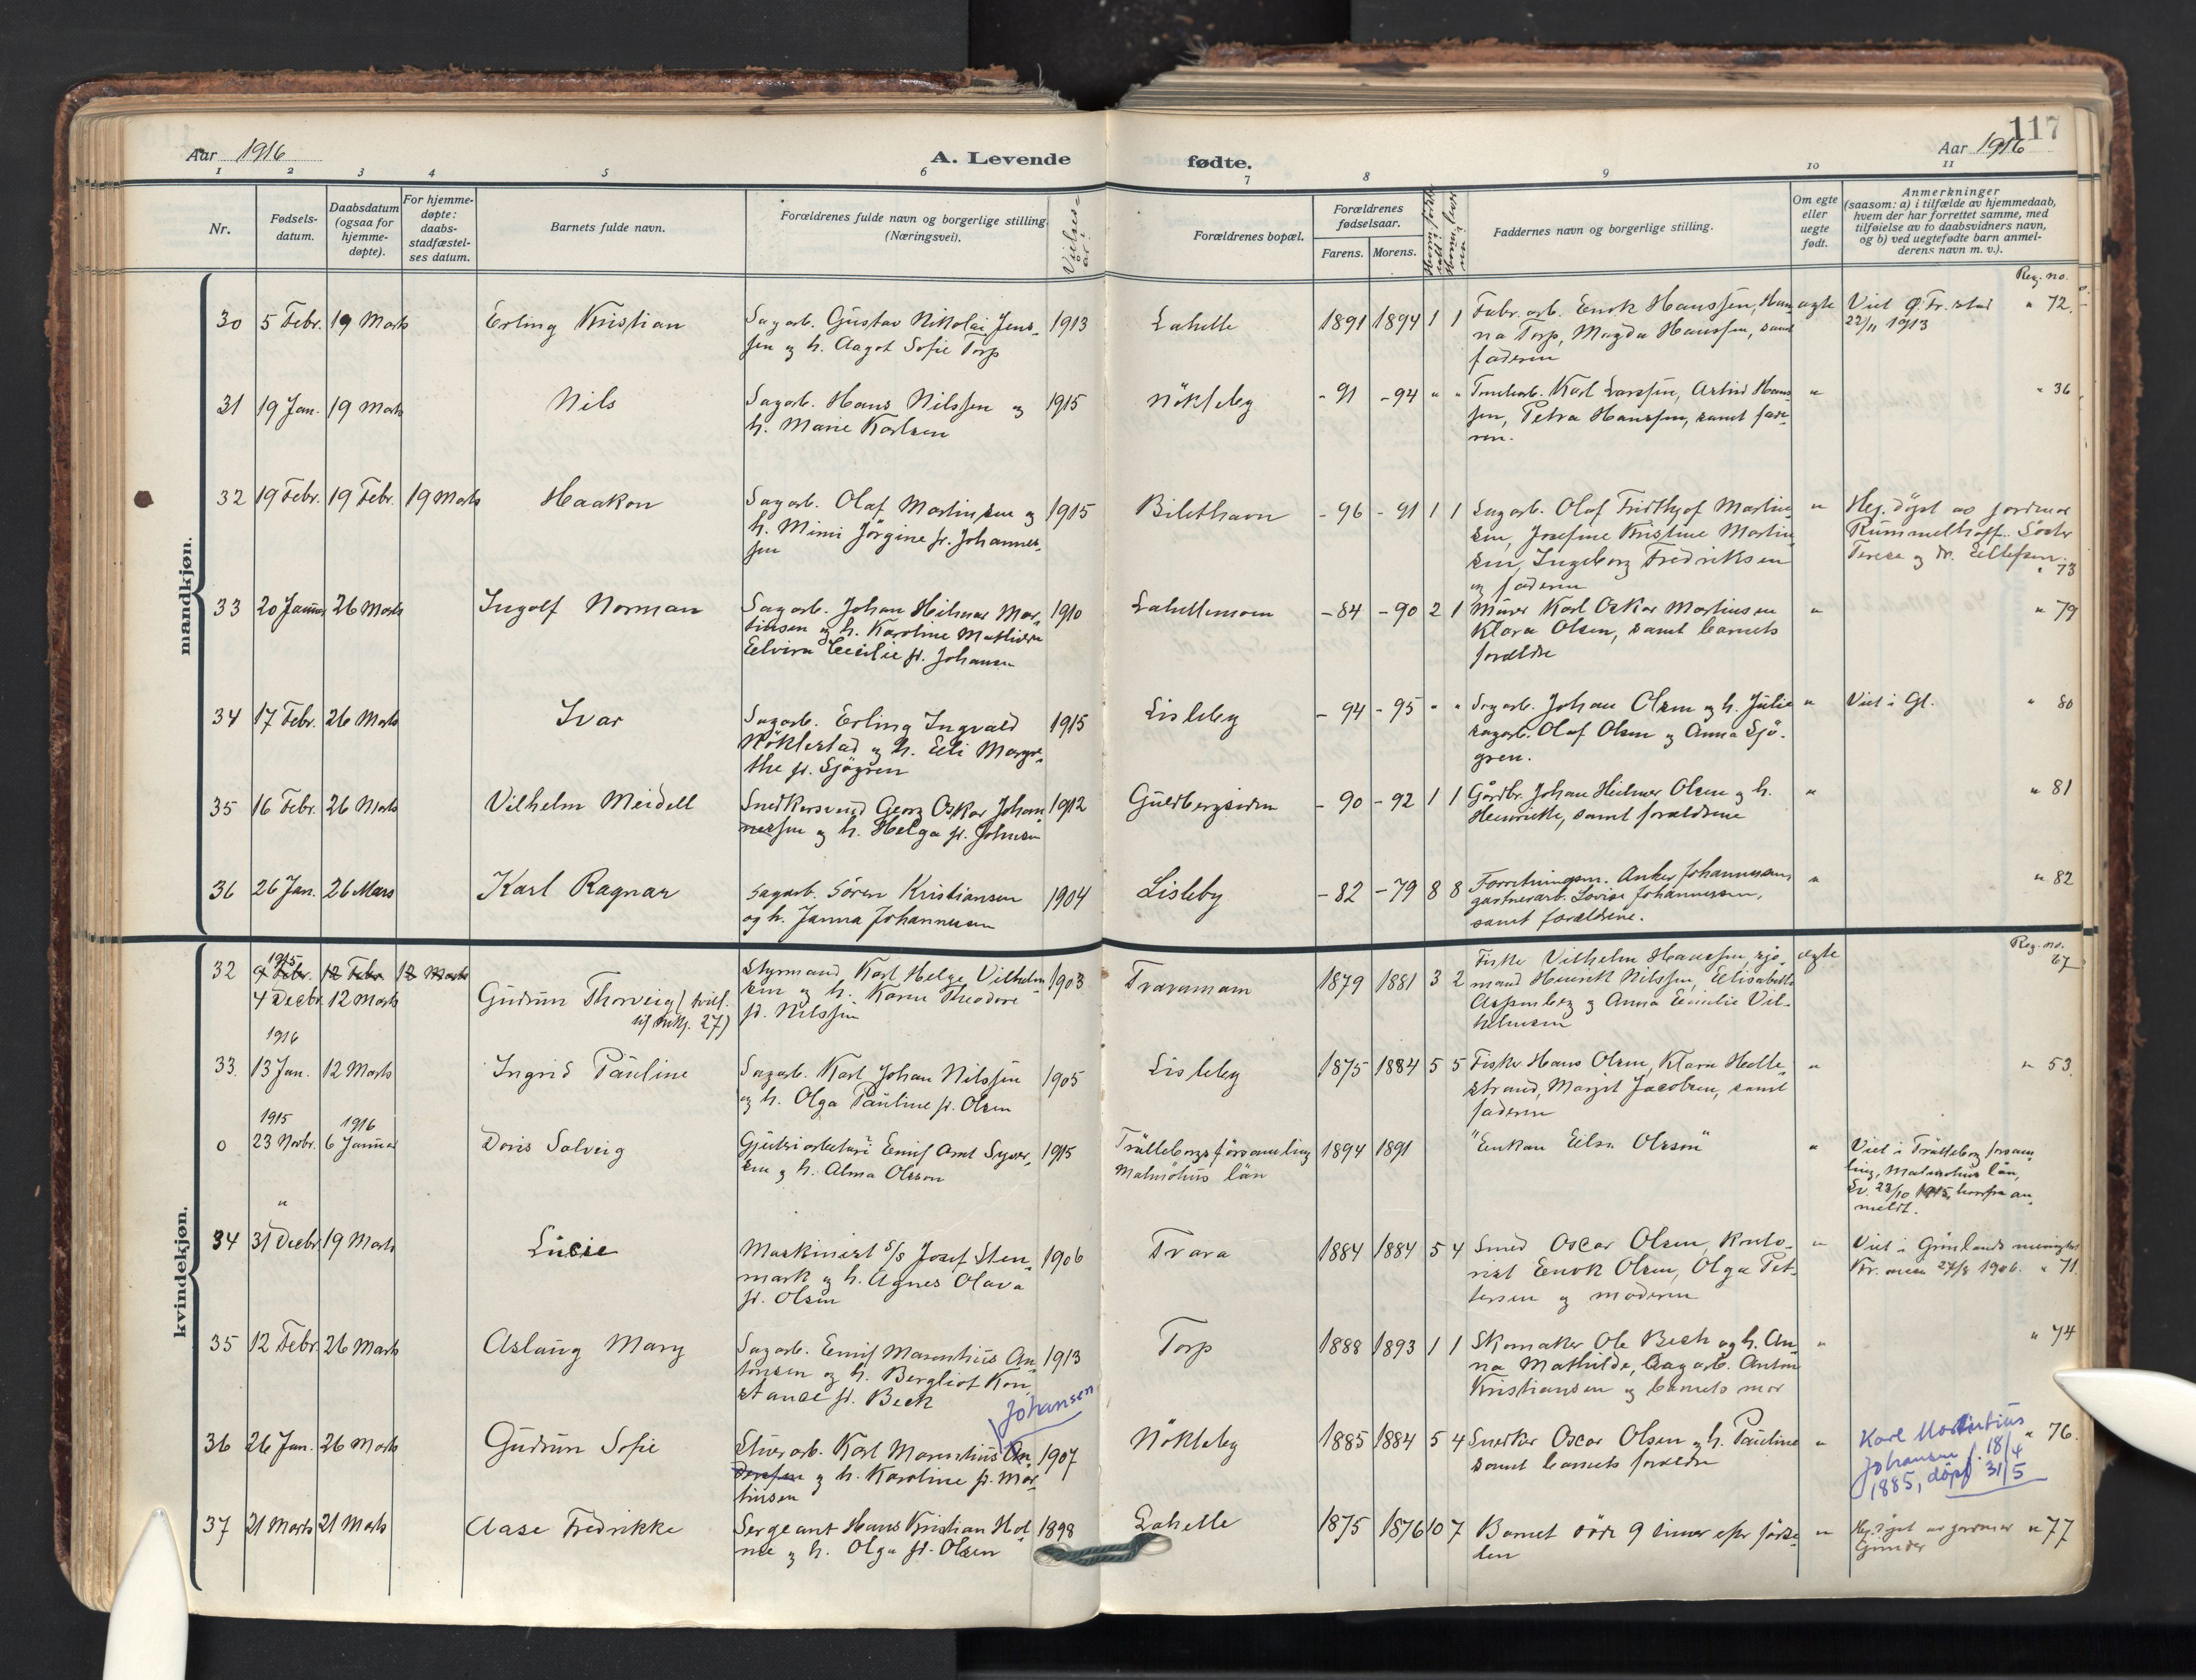 117
Aar 1916
A. Levende
fødte.
Aar 1916
1 2 3 4 5 6 7 8 9 10 11
Nr.
Fødsels-
datum.
Daabsdatum
(ogsaa for
hjemme-
døpte).
For hjemme-
døpte:
daabs-
stadfæstel-
ses datum.
Barnets fulde navn.
Forældrenes fulde navn og borgerlige stilling
(Næringsvei).
Vielses-
år
Forældrenes bopæl.
Forældrenes
fødselsaar.
Farens. Morens.
Faddernes navn og borgerlige stilling.
Om egte
eller
uegte
født.
Anmerkninger
(saasom: a) i tilfælde av hjemmedaab,
hvem der har forrettet samme, med
tilføielse av to daabsvidners navn,
og b) ved uegtefødte barn anmel-
derens navn m. v.).
mandkjøn.
Reg. no.
30 5 Febr. 19 Marts Erling Kristian
Sagarb. Gustav Nikolai Jens-
sen og h. Aagot Sofie Torp
1913 Lahelle 1891 1894 1 1
Fabr. arb. Enok Hanssen, Han
na Torp, Magda Hanssen, samt
faderen
egte
Viet Ø. Fr.stad
22/11 1913
" 72.
31 19 Jan. 19 Marts Nils
Sagarb. Hans Nilssen og
h. Marie Karlsen
1915 Nökleby - 91 - 94 " "
Karl Larssen, Astrid Hans
sen, Petra Hanssen, samt fade
ren.
" " 36
32 19 Febr. 19 Febr. 19 Marts Haakon
Sagarb. Olaf Martinsen og
h. Mimi Jörgine f. Johannes-
sen
1915 Bilethavn - 96 - 91 1 1
Sagarb. Olaf Fridthjof Martin
sen, Josefine Kristine Martin
sen, Ingeborg Fredriksen
og faderen
"
Hej. döpt av jordmor
Rummelhoff. Söster
Terese og dr. Ellefsen.
" 73
33 20 Januar 26 Marts Ingolf Norman
Sagarb. Johan Hilmar Mar-
tinsen og h. Karoline Mathilde
Elvira Cecilie f. Johansen
1910 Lahellemoen - 84 - 90 2 1
Murer Karl Oskar Martinsen
Klara Olsen, samt barnets
forældre
" " 79
34 17 Febr. 26 Marts Ivar
Sagarb. Erling Ingvald
Nöklestad og h. Elli Margre-
the f. Sjögren
1915 Lisleby - 94 - 95 " "
Sagarb. Johan Olsen og h. Julie
sagarb. Olaf Olsen og Anna Sjö-
gren.
" Viet i Gl. " 80
35 16 Febr. 26 Marts Vilhelm Meidell
Snedkersvend Georg Oskar Johan
nessen og h. Helga f. Johnsen
1912 Guldbergsiden - 90 - 92 1 1
Gårdbr. Johan Hilmer Olsen og h.
Henriette, samt forældrene
" " 81
36 26 Jan. 26 Mars Karl Ragnar
Sagarb. Sören Kristiansen
og h. Janna Johannesen
1904 Lisleby - 82 - 79 8 8
Forretningsm. Anker Johannessen,
gartnerarb. Lovise Johannessen,
samt forældrene.
" " 82
kvindekjøn.
Reg. no.
67
32 1915
4 Decbr. 12 Marts Gudrun Thorveig (tvill.
til mkj. 27)
Styrmand Karl Helge Vilhelm
sen og h. Karen Theodore
f. Nilssen
1903 Traramoen 1879 1881 3 2
Fisker Vilhelm Hanssen, sjö-
mand Henrik Nilssen, Elisabeth
Aspenberg og Anna Emilie Vil-
helmsen
egte
1916
33. 13 Jan. 12 Marts Ingrid Pauline
Sagarb. Karl Johan Nilssen
og h. Olga Pauline f. Olsen
1905 Lisleby 1875 1884 5 5
Fisker Hans Olsen, Klara Helle-
strand, Margit Jacobsen, samt
faderen
" " 53.
1915 1916
0 23 Novbr. 6 Januar Doris Solveig
Emil Arnt Syver-
sen og h. Alma Olsson
1915
Trälleborgs församling
Malmöhus län
1894 1891
"Enkan Elsa Olsson"
"
Viet i Trälleborg forsam
ling, Malmöhus län,
Sv. 23/10 1915, hvorfra an-
meldt.
"
34 31 Decbr 19 Marts Lucie
Maskinist S/S Josef Sten-
mark og h. Agnes Olava
f. Olsen
1906 Trara 1884 1884 5 4
Smed Oscar Olsen, konto-
rist Enok Olsen, Olga Pet-
tersen og moderen
"
Viet i Grönlands menighet
Kr.ania 27/8 1906. " 71.
35 12 Febr. 26 Marts Aslaug Mary
Sagarb. Emil Marentius An-
tonsen og h. Bergliot Kon-
stance f. Beck
1913 Torp 1888 1893 1 1
Skomaker Ole Beck og h. An-
na Mathilde, Sagarb. Anton
Kristiansen og barnets mor
" " 74
Johansen
36 26 Jan. 26 Marts Gudrun Sofie
Stuerarb. Karl Marentius An-
derssen og h. Karoline f. Mar-
tinsen
1907 Nökleby 1885 1884 5 4
Snedker Oscar Olsen og h. Pauline
samt barnets forældre
"
Karl Marentius
Johansen f. 18/4
1885, döpt 31/5
" 76.
37 21 Marts 21 Marts Aase Fredrikke
Sergeant Hans Kristian Hol
me og h. Olga f. Olsen
1898 Lahelle 1875 1876 10 7
Barnet döde 9 timer efter födse
len
"
Hej. döpt av jordmor
Gunder
" 77